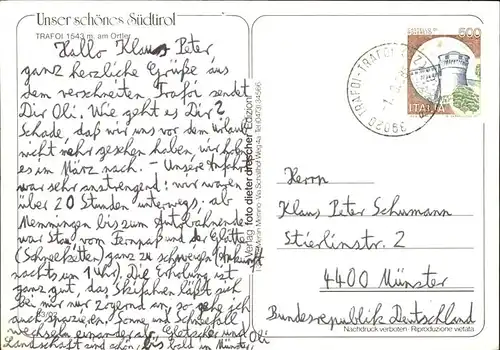 Unser schönes Südtirol
TRAFOI 1543 m. am Ortler
Hallo Klaus Peter
ganz herzliche Grüße aus
dem verschneiten Trafoi sendet
Dir Oli. Wie geht es Dir?
Schade daß wir uns vor dem Urlaub
nicht mehr gesehen haben, wir holen
es im März nach. - Unsere Anfahrt
war sehr anstrengend: wir waren
über 20 Stunden unterwegs, ab
Memmingen bis zum Autobahnende
war Stau, vom Fernpaß und der Glätte
(Schneeketten) ganz zu schweigen (Ankunft
nachts um 1 Uhr). Die Erholung ist
ganz gut, das Skifahren läßt sich
bei mir nur zögernd an, so gehe ich
auch spazieren. Sonne und Schneefall
wechseln einander ab. Gletscher und
Landschaft sind schön, bis bald in Münster, Oli
Verlag foto dieter drescher Edizioni
39020 TRAFOI-TRAFOI
500
ITALIA
Herrn
Klaus Peter Schumann
Stierlinstr. 2
4400 Münster
Bundesrepublik Deutschland
Nachdruck verboten - Riproduzione vietata